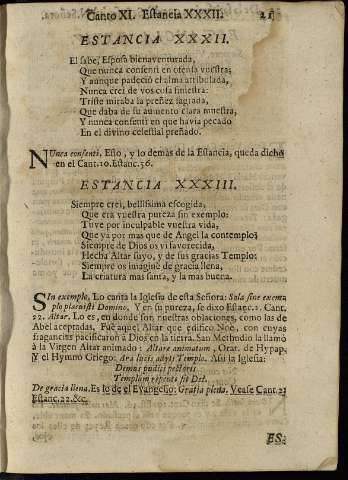 Canto XI. Estancia XXXII. 21
ESTANCIA XXXII.
El sabe, Esposa bienaventurada,
Que nunca consenti en ofensa vuestra;
Y aunque padeciò el alma atribulada,
Nunca crei de vos cosa siniestra:
Triste miraba la preñez sagrada,
Que daba de su aumento clara muestra,
Y nunca consenti en que havia pecado
En el divino celestial preñado.
NUnca consenti, Esto, y lo demàs de la Estancia, queda dicho
en el Cant. 10. Estanc. 56.
ESTANCIA XXXIII.
Siempre crei, bellissima escogida,
Que era vuestra pureza sin exemplo:
Tuve por inculpable vuestra vida,
Que ya por mas que de Angel la contemplo:
Siempre de Dios os vi favorecida,
Hecha Altar suyo, y de sus gracias Templo:
Siempre os imaginè de gracia llena,
La criatura mas santa, y la mas buena.
SIn exemplo, Lo canta la Iglesia de esta Señora: Sola sine exem-
plo placuisti Domino, Y en su pureza, se dixo Estanc. 1. Cant.
22. Altar. Lo es, en donde son nuestras oblaciones, como las de
Abel aceptadas. Fuè aquel Altar que edificò Noè, con cuyas
fragancias pacificaron à Dios en la tierra. San Methodio la llamò
à la Virgen Altar animado: Altare animatum, Orat. de Hypap.
y el Hymno Griego: Ara lucis adyti Templo. Assi la Iglesia:
Domus pudici pectoris
Templum repente fit Dei.
De gracia llena. Es lo de el Evangelio: Gratia plena. Vease Cant. 2.
Estanc. 22. &c.
ES-